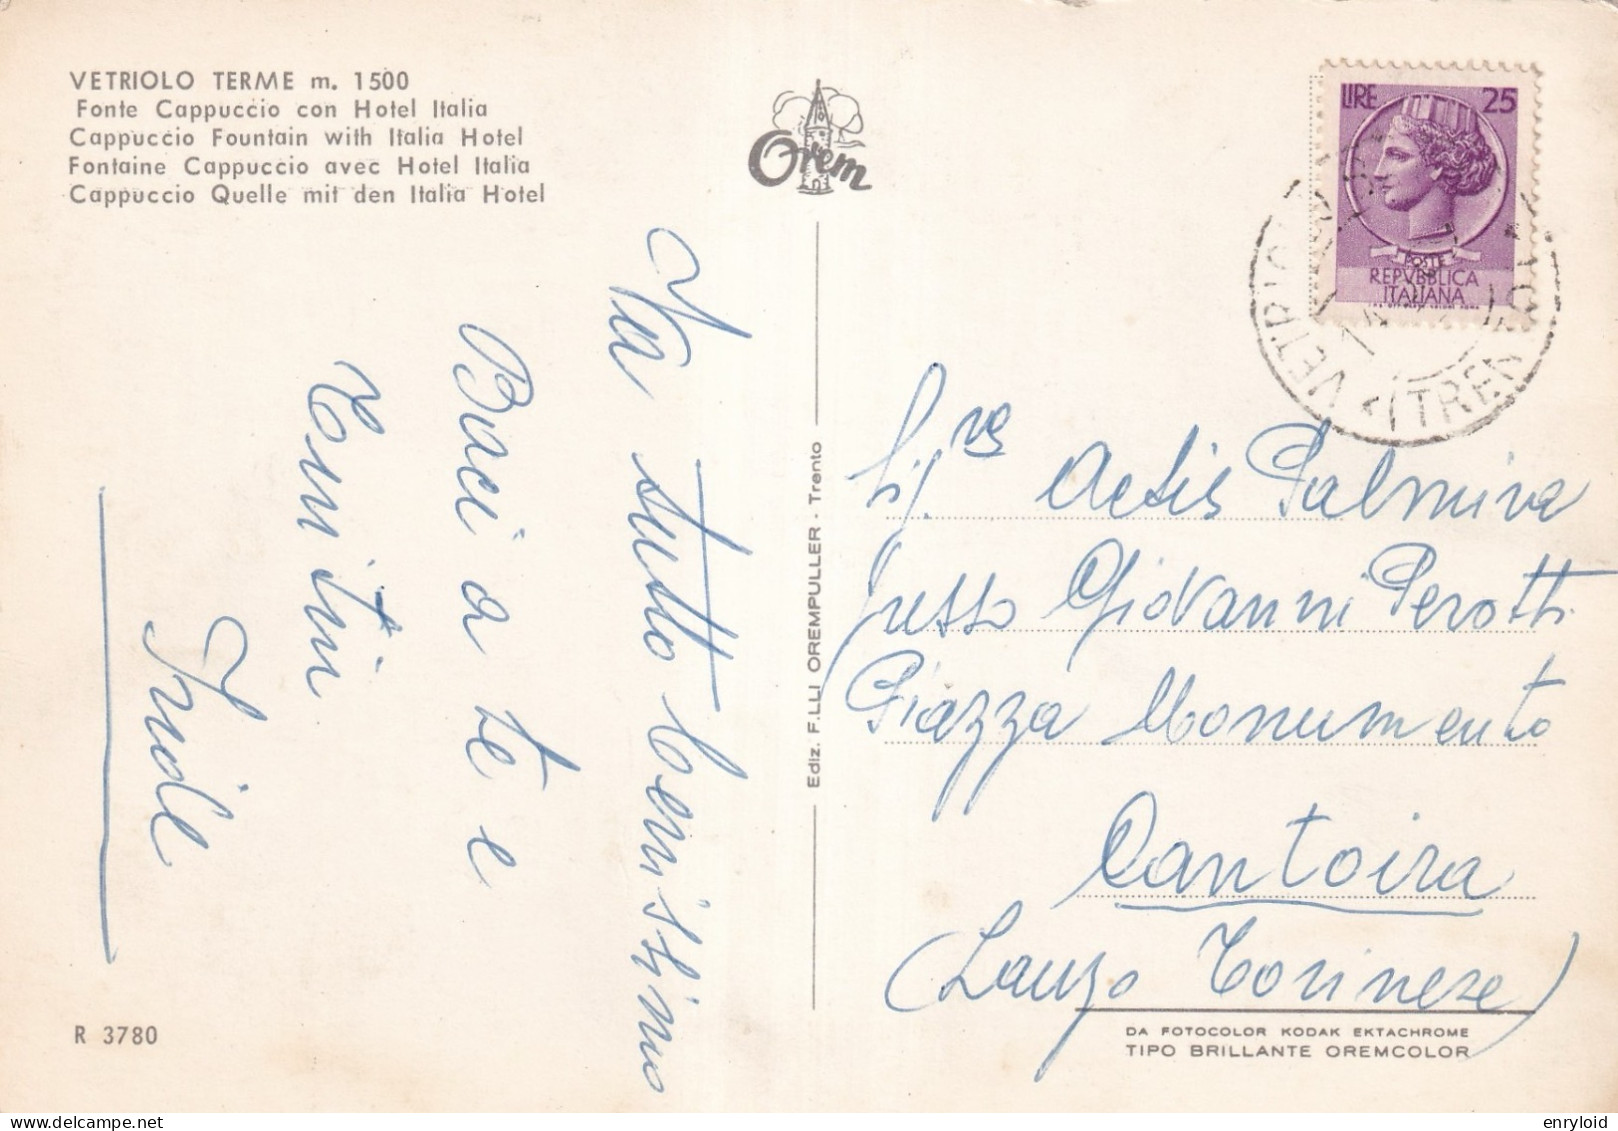 VETRIOLO TERME m. 1500
Fonte Cappuccio con Hotel Italia
Cappuccio Fountain with Italia Hotel
Fontaine Cappuccio avec Hotel Italia
Cappuccio Quelle mit den Italia Hotel
Orem
LIRE 25
POSTE
REPVBBLICA
ITALIANA
VETRIOLO
(TRENTO)
Va tutto benissimo
Baci a te e
Iride
Ediz. F.LLI OREMPULLER - Trento
Sig.ra Actis Palmira
presso Giovanni Perotti
Piazza Monumento
Cantoira
(Lanzo Torinese)
R 3780
DA FOTOCOLOR KODAK EKTACHROME
TIPO BRILLANTE OREMCOLOR
enryloid